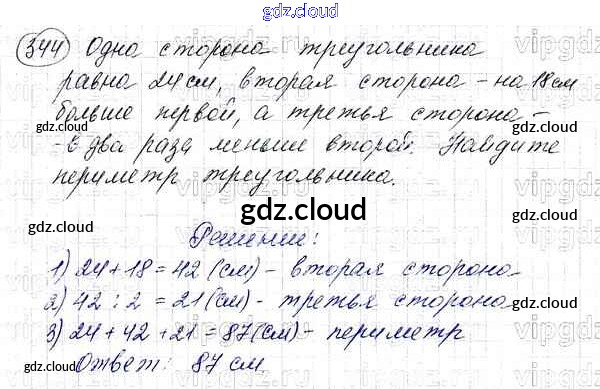 gdz.cloud
344 Одна сторона треугольника
равна 24 см, вторая сторона - на 18 см
больше первой, а третья сторона -
- в два раза меньше второй. Найдите
периметр треугольника.
gdz.cloud
Решение:
1) 24 + 18 = 42 (см) - вторая сторона
2) 42 : 2 = 21 (см) - третья сторона
3) 24 + 42 + 21 = 87 (см) - периметр
Ответ: 87 см.